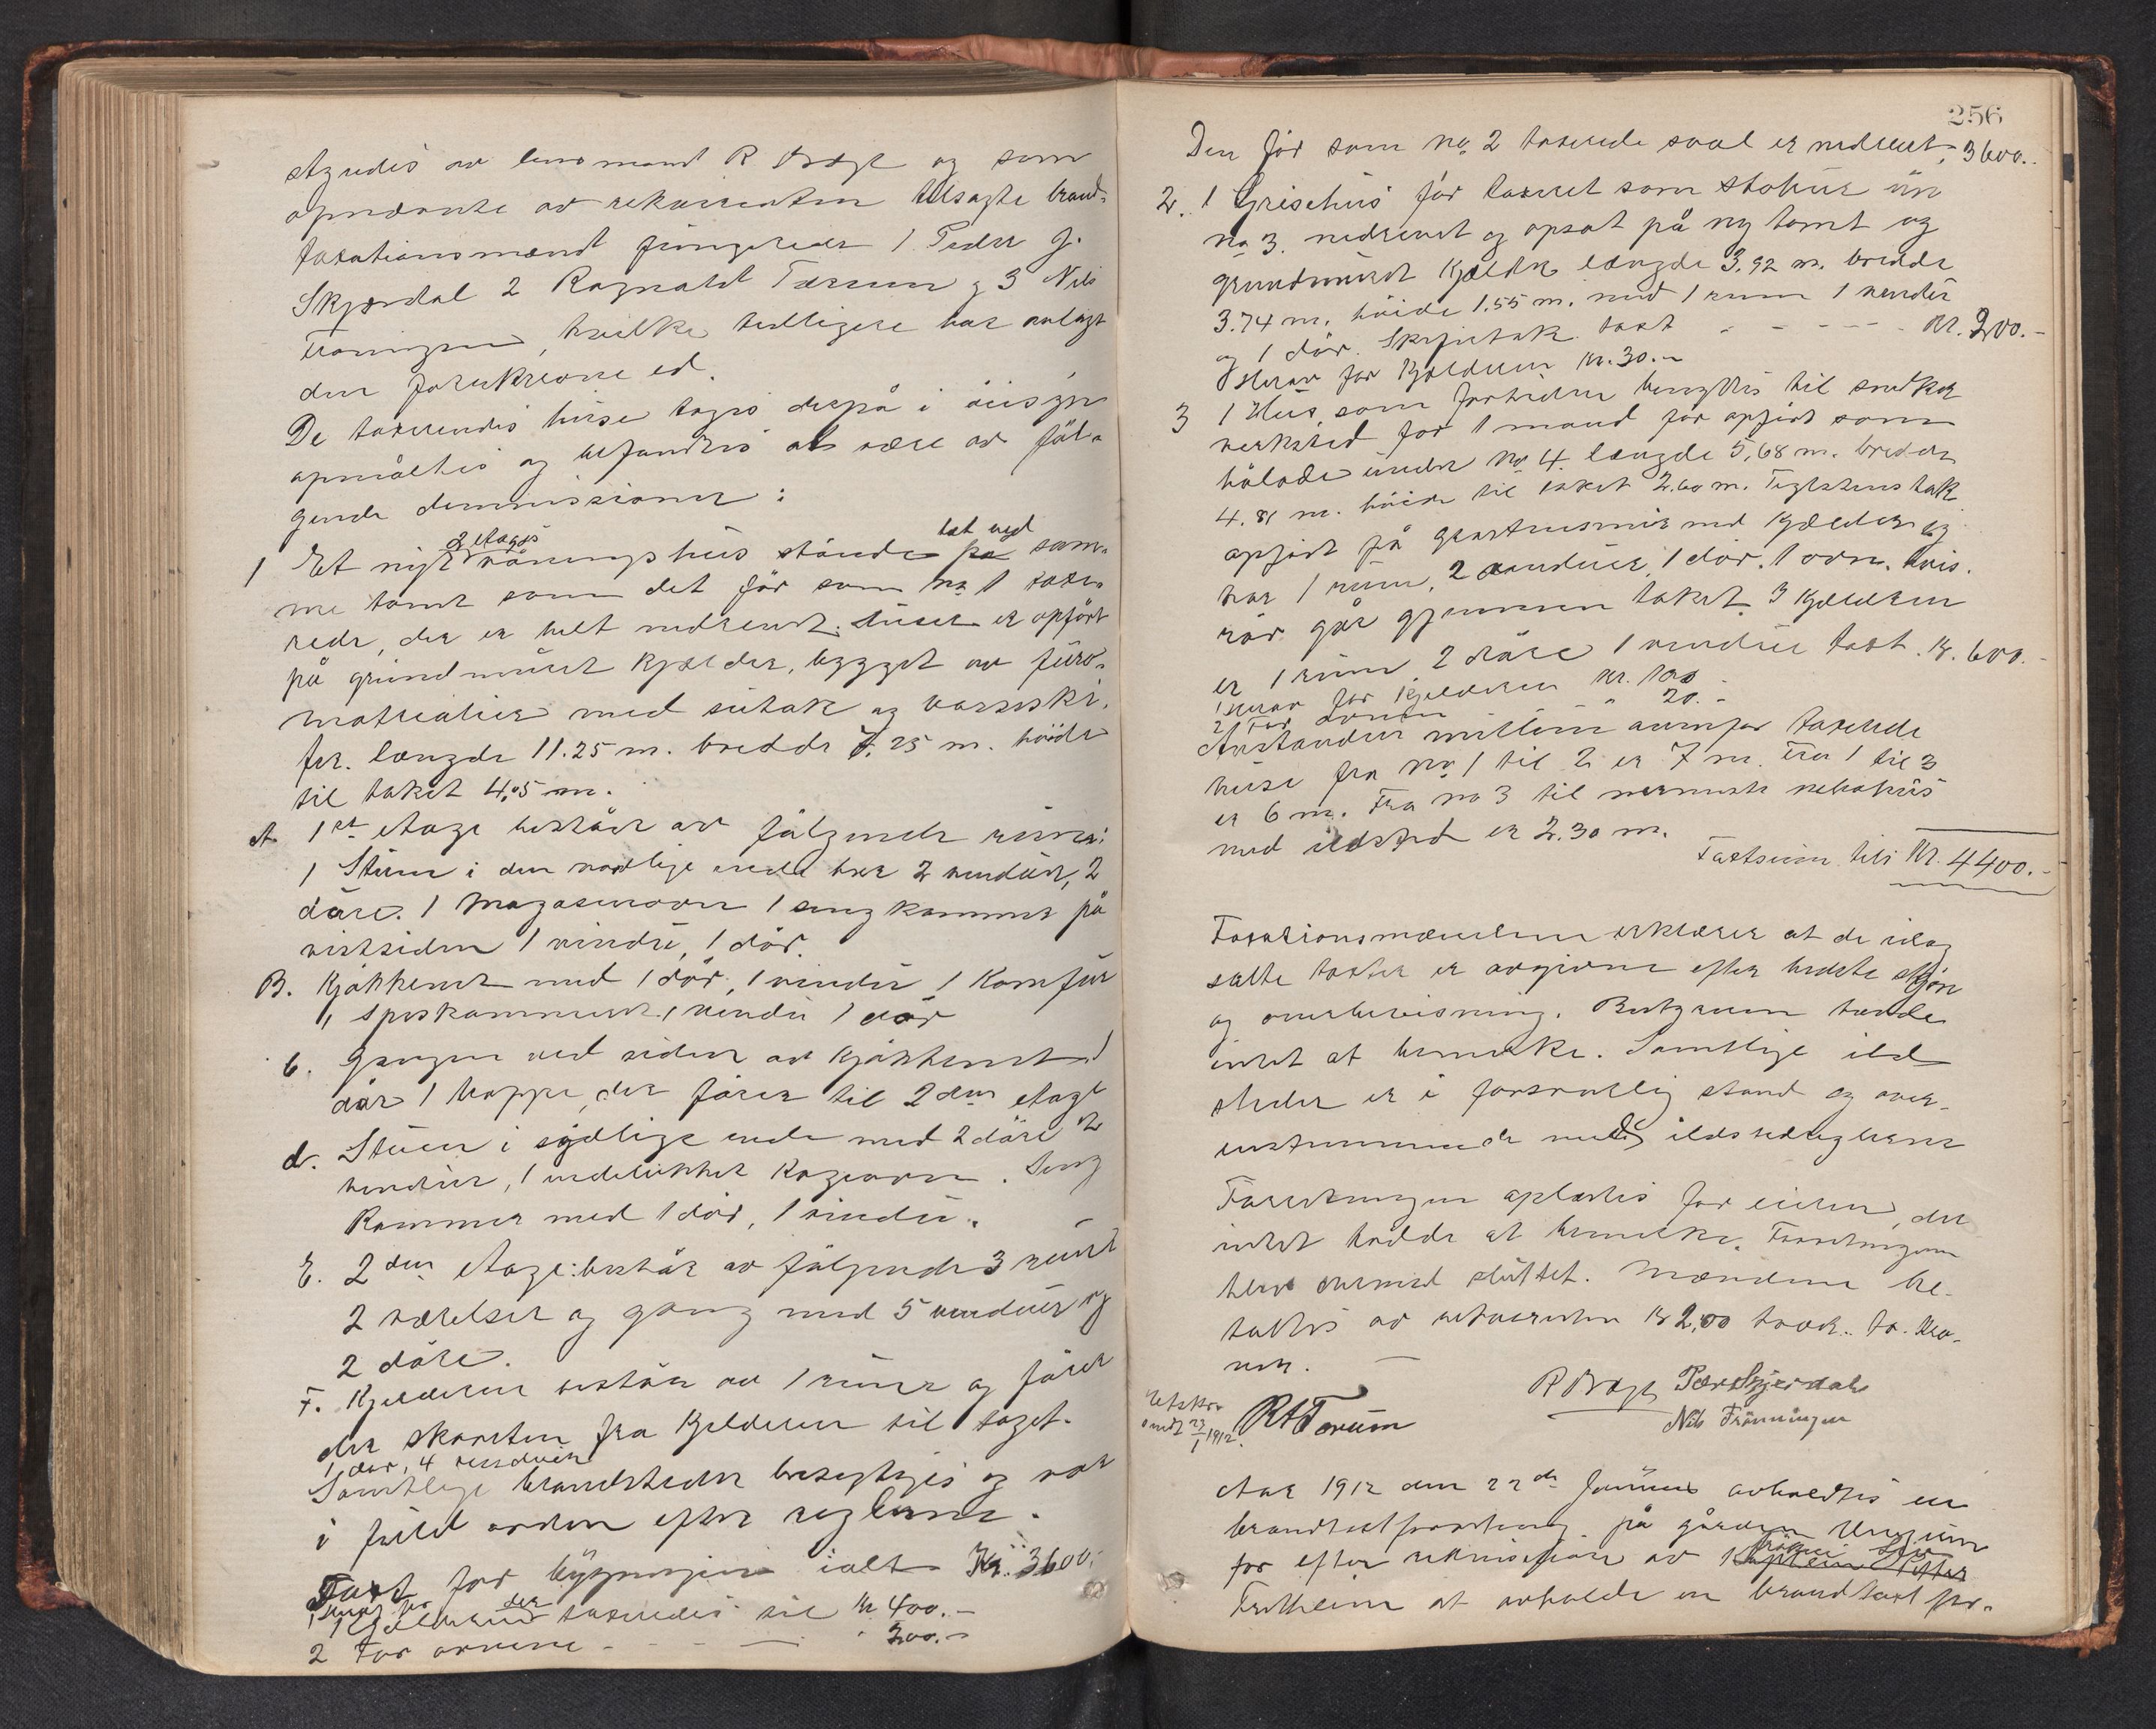 styredes av lensmand R Bræge og som
opnævnte av rekvirenten tilsagte brand-
taxationsmænd fungerede 1 Peder J.
Skjerdal 2 Ragnald Torum og 3 Nils
Frønningen, hvilke tidligere har avlagt
den foreskrevne ed.
De taxerendes huse toges derpå i öiesyn
opmåltes og befandtes at være av föl-
gende demmissioner:
1 Et nyt 2 etages våningshus stående tæt ved sam-
me tomt som det för som No 1 taxe-
rede, der er helt nedrevet. Huset er opfört
på grundmuret kjælder, bygget av furu-
matrialier med sutak og vasski-
fer. længde 11.25 m. bredde 7.25 m. höide
til taket 4,05 m.
A 1ste etage består av følgende rum:
1 Stuen i den nordlige ende har 2 vinduer, 2
döre. 1 Magasinovn 1 sengkammer på
vestsiden 1 vindu, 1 dör.
B. Kjökkenet med 1 dör, 1 vindu 1 Komfur
1 speskammer 1 vindu 1 dör
C. Gangen ved siden av kjökkenet 1
dör 1 trappe, der förer til 2den etage
d. Stuen i sydlige ende med 2 döre 2
vinduer, 1 indelukket Kogeovn. Seng
Kammer med 1 dör, 1 vindu.
E. 2den etage: består av følgende 3 rum
2 værelser og gang med 5 vinduer og
2 döre.
F. Kjelderen består av 1 rum og förer
der skorsten fra Kjelderen til taget.
1 dør, 4 vinduer
Samtlige brandsteder besigtiges og var
i fuld orden efter reglerne.
Taxt for bygningen ialt Kr. 3600.
1 Herav for Kjelderen taxeredes til Kr 400.-
2 For ovnene - - - 200.-
256
Den för som No 2 taxerede sval er nedrevet, 3600..
2. 1 Grisehus för taxeret som stabur un
No 3. nedrevet og opsat på ny tomt og
grundmuret kjelder længde 3.92 m. bredde
3.74 m. höide 1.55 m. med 1 rum 1 vindu
og 1 dör. Skifertak taxt - - - - Kr. 200.-
Herav for Kjelderen Kr. 30.-
3 1 Hus, som fortiden benyttes til snedker
verksted for 1 mand för opfört som
hölade under No 4. længde 5,68 m. bredde
4.81 m. höide til taket 2.60 m. Teglstens tak
opfört på gråstensmur med kjælder og
har 1 rum, 2 vinduer, 1 dör. 1 ovn. hvis
rör går gjennem taket. I Kjelderen
er 1 rum 2 döre 1 vindu taxt. Kr. 600.-
1 Herav for Kjelderen Kr. 100
2 For ovnen " 20.-
Avstanden mellem ommfor taxerede
huse fra No 1 til 2 er 7 m. Fra 1 til 3
er 6 m. Fra No 3 til nermeste nabohus
med ildsted er 2.30 m.
Taxtsum tils Kr. 4400.-
Taxationsmændene erklærer at de idag
satte taxter er avgivne efter bedste skjön
og overbevisning. Bestyreren havde
intet at bemerke. Samtlige ild
steder er i forsvarlig stand og over-
ensstemmende med ildstedreglerne
Forretningen oplæstes for eieren, der
intet hadde at bemerke. Forretningen
blev dermed sluttet. Mændene be-
taltes av rekvirenten Kr 2,00 hver.. to. kro-
ner.
R Bræge Peer Skjerdal
R A Torum Nils Frönningen
Utskr
sendt 23/1 1912.
Aar 1912 den 22de Januar avholdtes en
brandtaxtforretning på gården
for efter rekvisision av fröken
Fretheim at avholde en brandtaxt for-